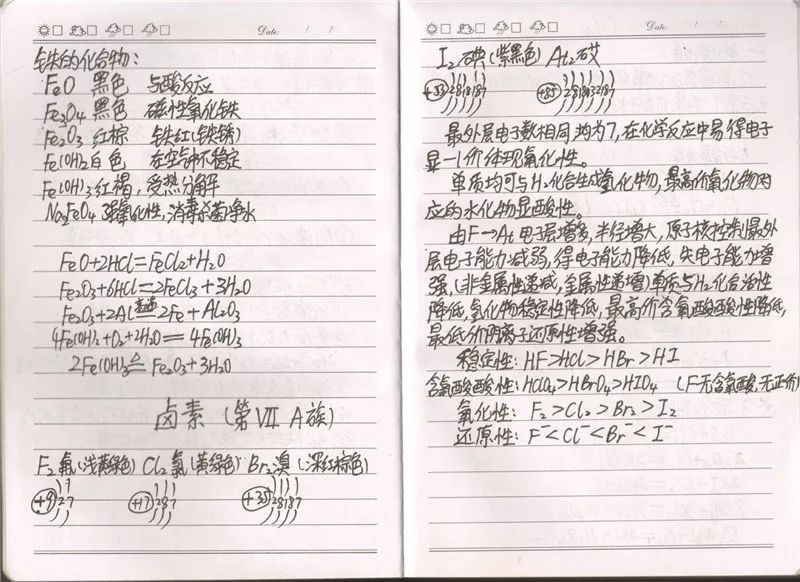 Date: / /
铁的化合物:
FeO 黑色 与酸反应
Fe3O4 黑色 磁性氧化铁
Fe2O3 红棕 铁红(铁锈)
Fe(OH)2 白色 在空气中不稳定
Fe(OH)3 红褐, 受热分解
Na2FeO4 强氧化性, 消毒杀菌净水
FeO+2HCl=FeCl2+H2O
Fe2O3+6HCl=2FeCl3+3H2O
Fe2O3+2Al 高温 2Fe+Al2O3
4Fe(OH)2+O2+2H2O=4Fe(OH)3
2Fe(OH)3 △ Fe2O3+3H2O
卤素 (第VII A族)
F2 氟(浅黄绿色) Cl2 氯(黄绿色) Br2 溴 (深红棕色)
+9 2 7 +17 2 8 7 +35 2 8 18 7
Date: / /
I2 碘(紫黑色) At2 砹
+53 2 8 18 18 7 +85 2 8 18 32 18 7
最外层电子数相同, 均为7, 在化学反应中易得电子
显-1价体现氧化性。
单质均可与H2化合生成氢化物, 最高价氧化物对
应的水化物显酸性。
由F→At 电子层增多, 半径增大, 原子核控制最外
层电子能力减弱, 得电子能力降低, 失电子能力增
强, (非金属性递减, 金属性递增) 单质与H2化合活性
降低, 氢化物稳定性降低, 最高价含氧酸酸性降低,
最低价阴离子还原性增强。
稳定性: HF>HCl>HBr>HI
含氧酸酸性: HClO4>HBrO4>HIO4 (F无含氧酸, 无正价)
氧化性: F2>Cl2>Br2>I2
还原性: F-<Cl-<Br-<I-